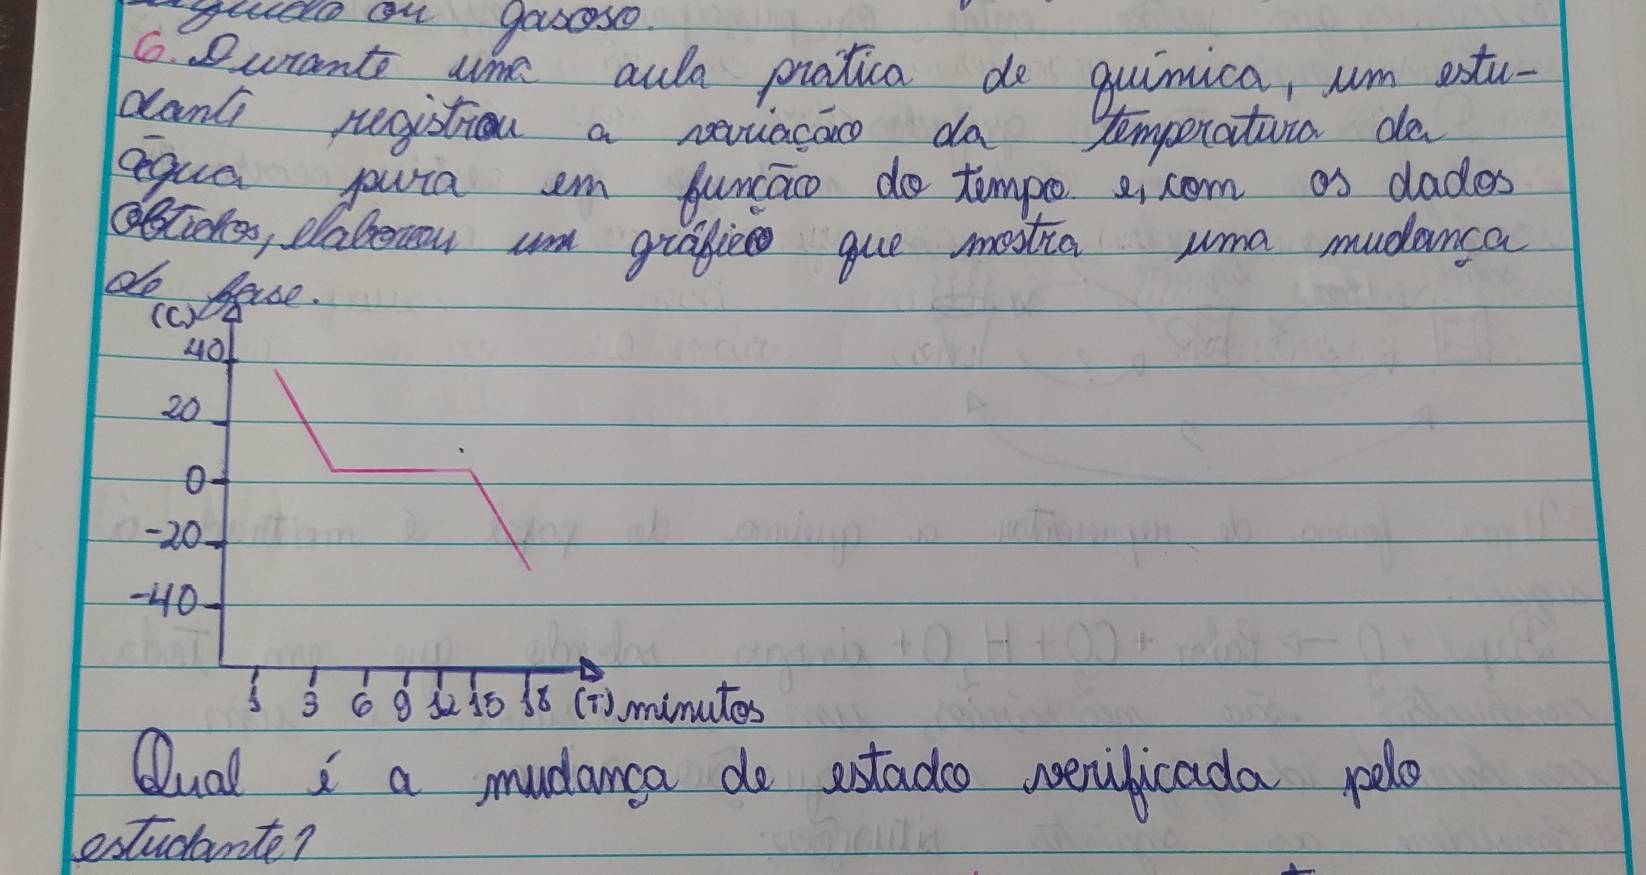 ou gasoso.
6. Durante uma aula prática de química, um estu-
dante registrou a variação da temperatura da
água pura em função do tempo e, com os dados
obtidos, elaborou um gráfico que mostra uma mudança
de fase.
(C)
40
20
0
-20
-40
1 3 6 9 12 15 18 (T) minutos
Qual é a mudança de estado verificada pelo
estudante?